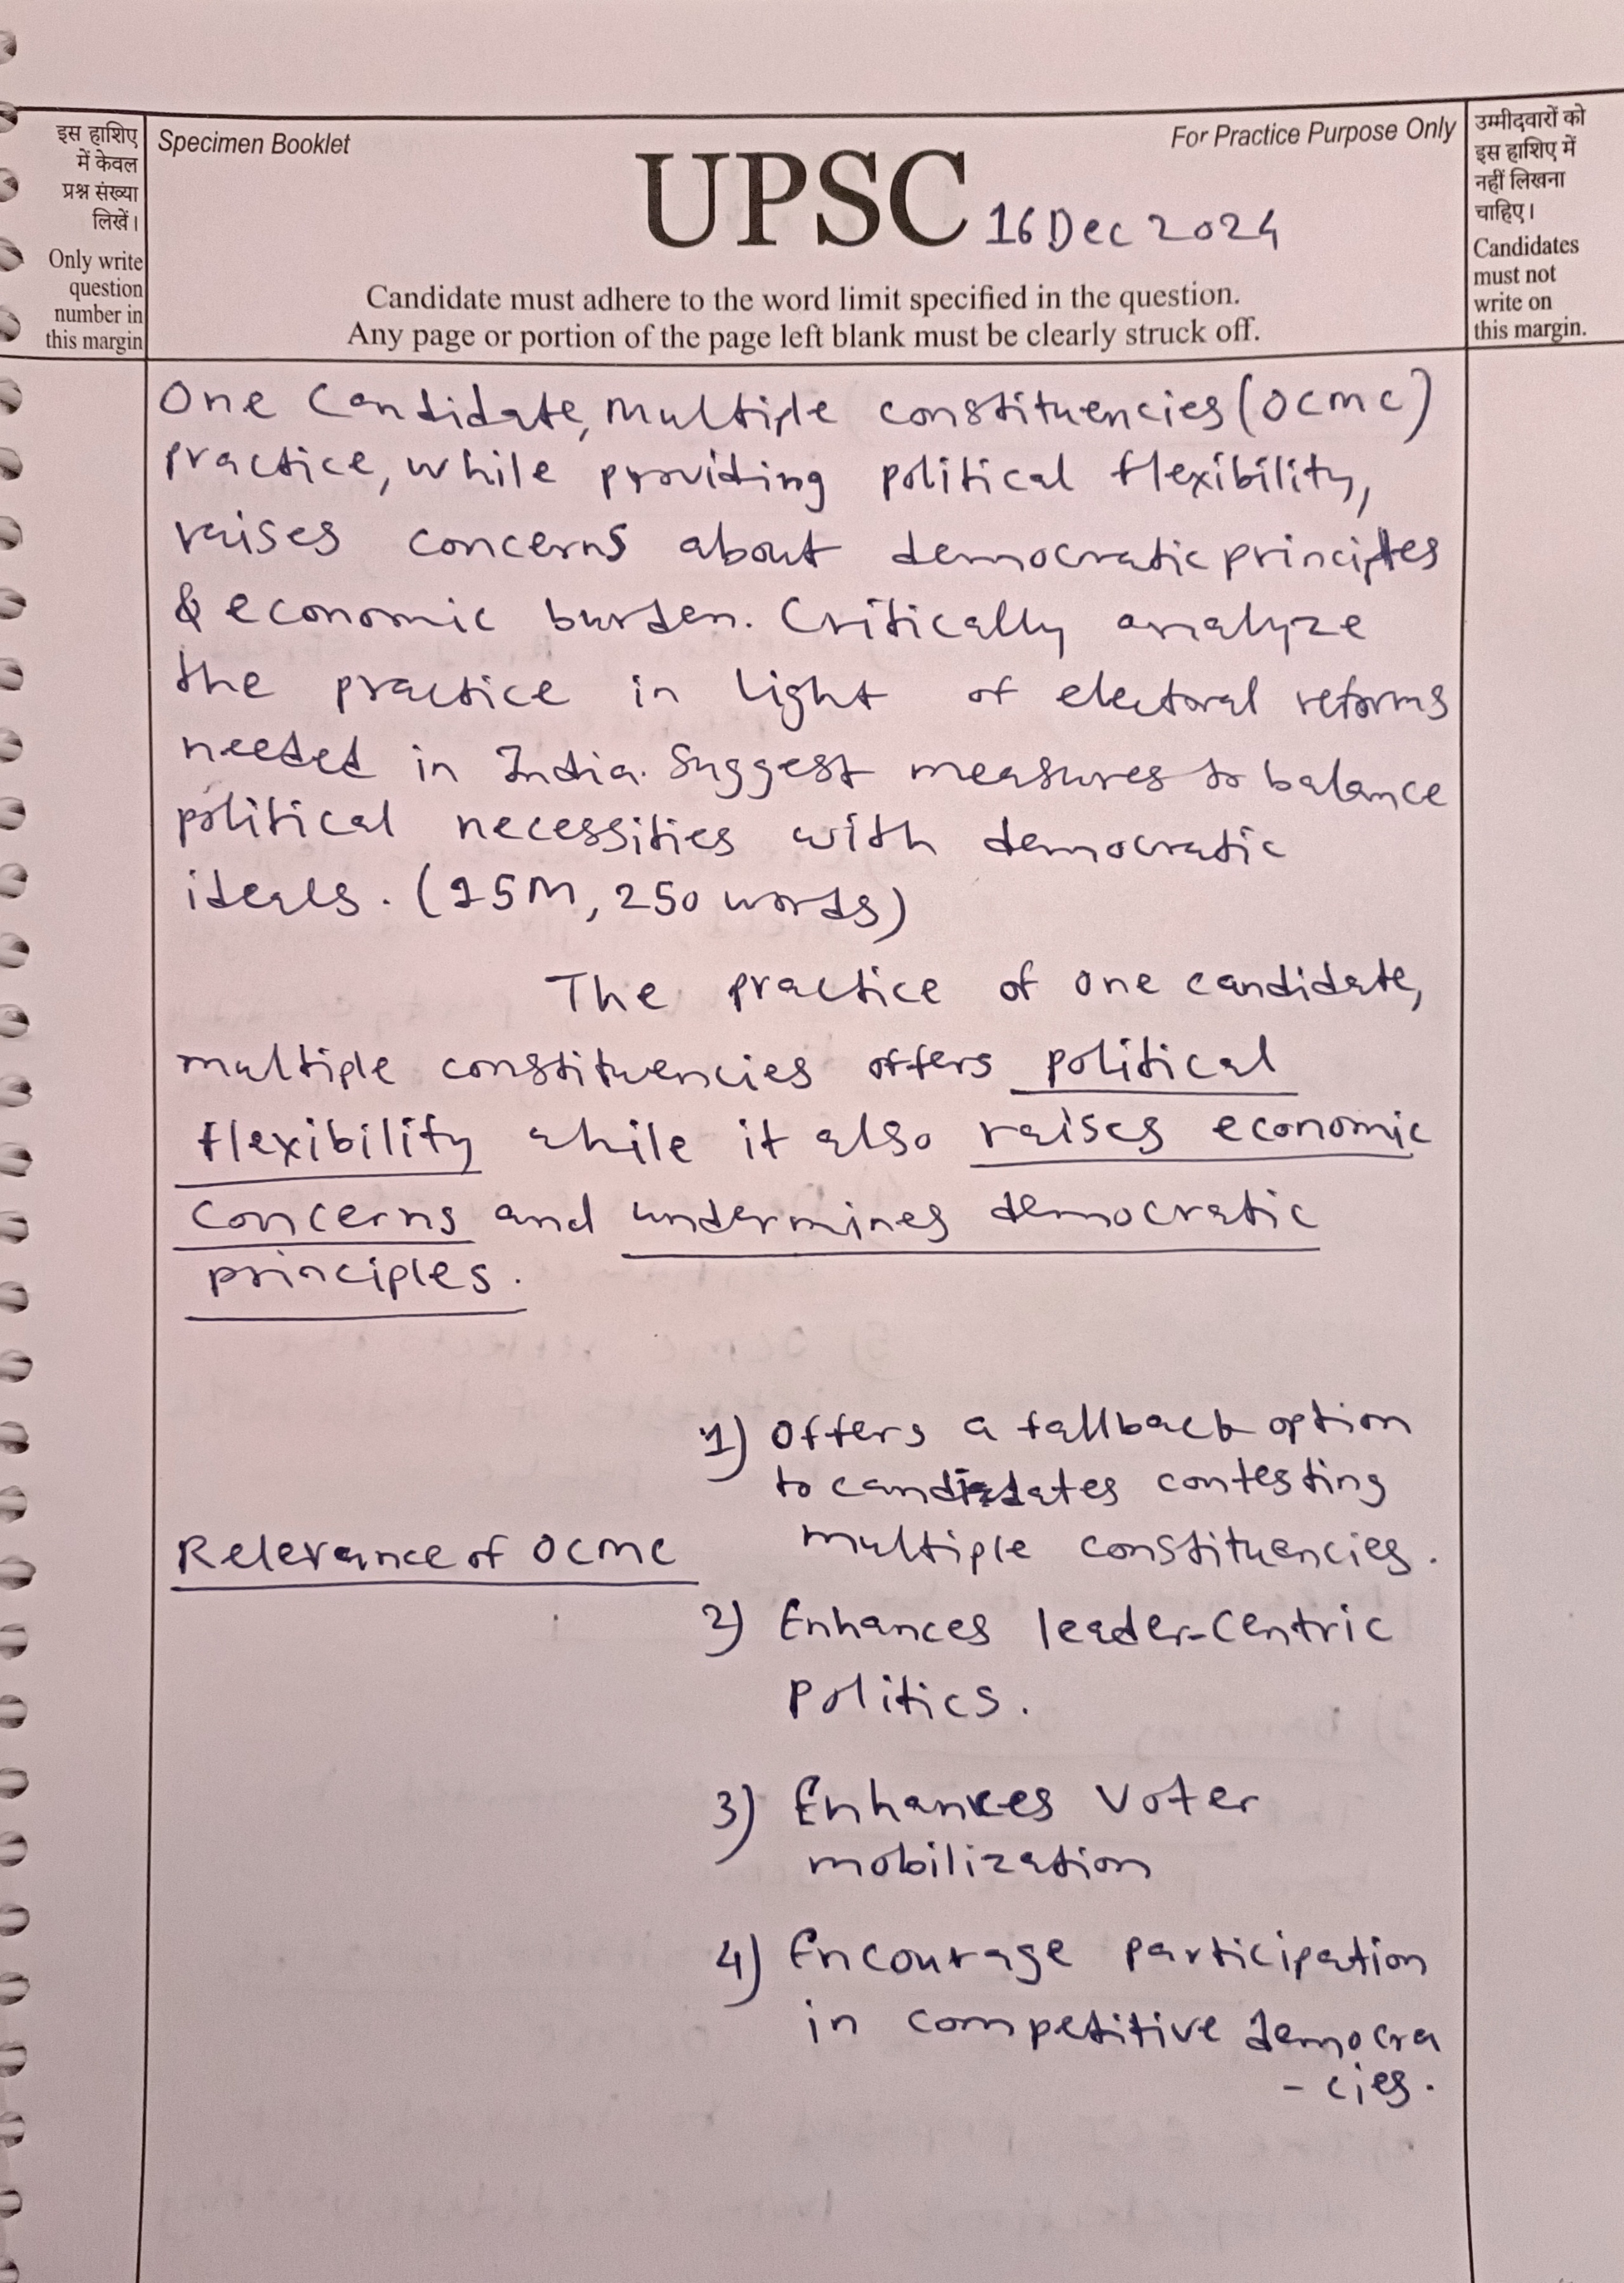 इस हाशिए
में केवल
प्रश्न संख्या
लिखें।
Only write
question
number in
this margin
Specimen Booklet
For Practice Purpose Only
UPSC 16 Dec 2024
Candidate must adhere to the word limit specified in the question.
Any page or portion of the page left blank must be clearly struck off.
उम्मीदवारों को
इस हाशिए में
नहीं लिखना
चाहिए।
Candidates
must not
write on
this margin.
One Candidate, Multiple constituencies (OCMC)
practice, while providing political flexibility,
raises concerns about democratic principles
& economic burden. Critically analyze
the practice in light of electoral reforms
needed in India. Suggest measures to balance
political necessities with democratic
ideals. (15M, 250 words)
The practice of one candidate,
multiple constituencies offers political
flexibility while it also raises economic
concerns and undermines democratic
principles.
Relevance of OCMC
1) Offers a fallback option
to candidates contesting
multiple constituencies.
2) Enhances leader-centric
politics.
3) Enhances voter
mobilization
4) Encourage participation
in competitive democra
-cies.